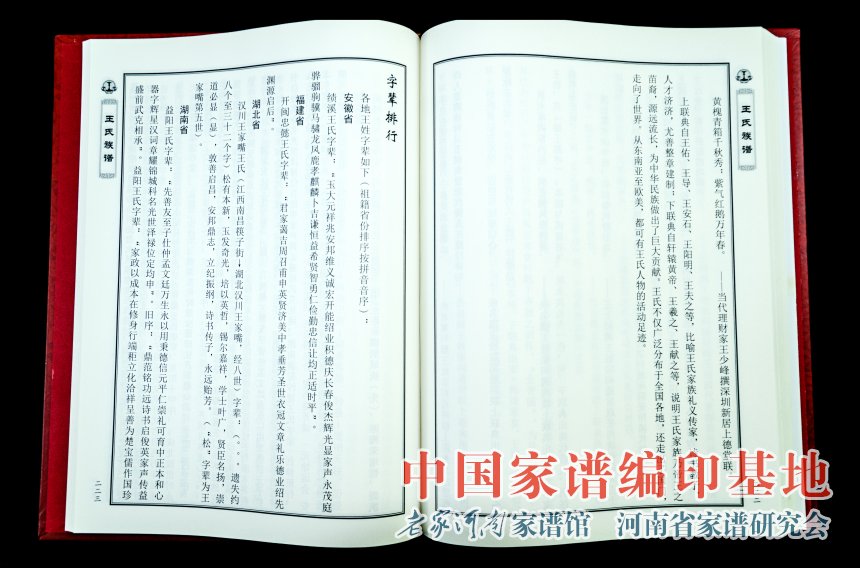 王氏族谱
黄槐青箱千秋秀；紫气红鹅万年春。
——当代理财家王少峰撰深圳新居上德堂联
上联典自王佑、王导、王安石、王阳明、王夫之等，比喻王氏家族礼义传家、
人才济济，尤善整章建制；下联典自轩辕黄帝、王羲之、王献之等，说明王氏家族
苗裔，源远流长，为中华民族做出了巨大贡献。王氏不仅广泛分布于全国各地，还走
走向了世界。从东南亚至欧美，都可有王氏人物的活动足迹。
字辈排行
各地王姓字辈如下（祖籍省份排序按拼音音序）：
安徽省
绩溪王氏字辈：“玉大元祥兆安邦维义诚宏开能绍业积德庆长春俊杰辉光显家声永茂庭
骅骝驹骥马骕龙凤鹿孝麒麟卜吉谦恒益希贤智勇仁俭勤忠信让均正适时平”。
福建省
开闽忠懿王氏字辈：“君家蔼吉周召甫申英贤济美中孝垂芳圣世衣冠文章礼乐德业绍先
渊源启后”。
湖北省
汉川王家嘴王氏（江西南昌筷子街-湖北汉川王家嘴，经八世）字辈：（。。”遗失约
八个至三十二个字）松有本新，玉发奇光，培以英哲，锡尔嘉祥，学士叶广，贤臣名扬，崇
道必显（显），敦善启昌，安邦鼎志，立纪振纲，诗书传子，永远贻芳。（“松”字辈为王
家嘴第五世）。
湖南省
益阳王氏字辈：“先善友至子仕仲孟文廷万生永以用秉德信元平仁崇礼可育中正本和心
器字辉星汉词章耀锦城科名光世泽禄位定均申”。旧序：“鼎范铭功远诗书启俊英家声传益
盛前武克相承”。益阳王氏字辈：“家政以成本在修身行端矩立化洽祥呈善为楚宝儒作国珍
王氏族谱
二二三
中国家谱编印基地
老家河南家谱馆 河南省家谱研究会